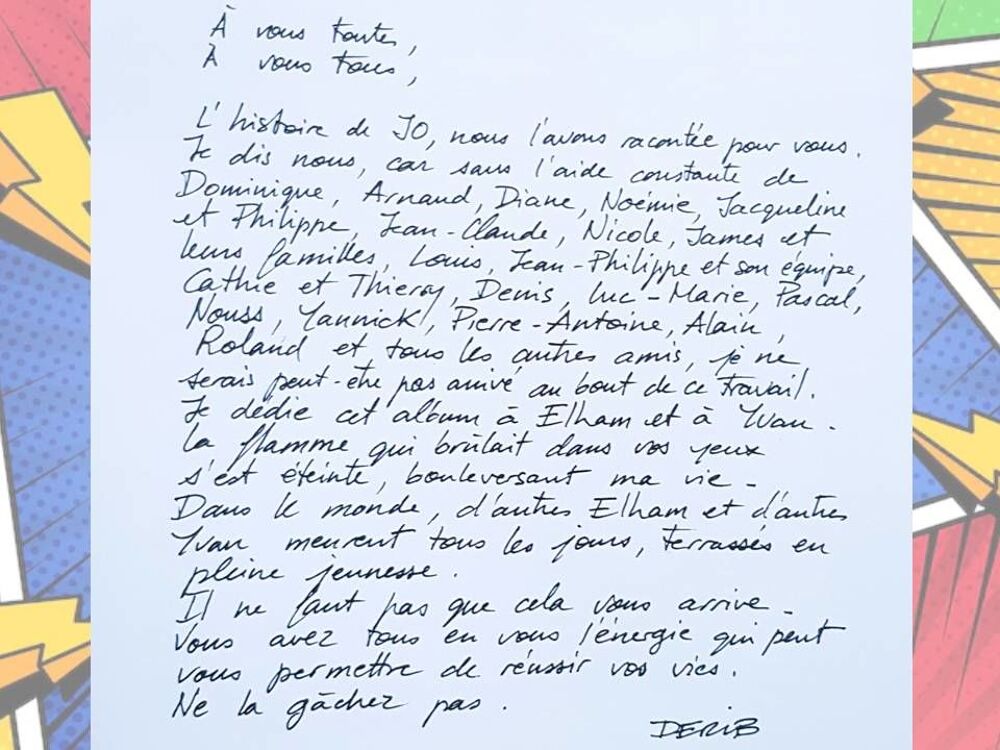 À vous toutes,
À vous tous,
L'histoire de JO, nous l'avons racontée pour vous.
Je dis nous, car sans l'aide constante de
Dominique, Arnaud, Diane, Noémie, Jacqueline
et Philippe, Jean-Claude, Nicole, James et
leurs familles, Louis, Jean-Philippe et son équipe,
Cathie et Thierry, Denis, Luc-Marie, Pascal,
Nouss, Yannick, Pierre-Antoine, Alain,
Roland et tous les autres amis, je ne
serais peut-être pas arrivé au bout de ce travail.
Je dédie cet album à Elham et à Yvan.
La flamme qui brûlait dans vos yeux
s'est éteinte, bouleversant ma vie.
Dans le monde, d'autres Elham et d'autres
Yvan meurent tous les jours, terrassés en
pleine jeunesse.
Il ne faut pas que cela vous arrive.
Vous avez tous en vous l'énergie qui peut
vous permettre de réussir vos vies.
Ne la gâchez pas.
DERIB